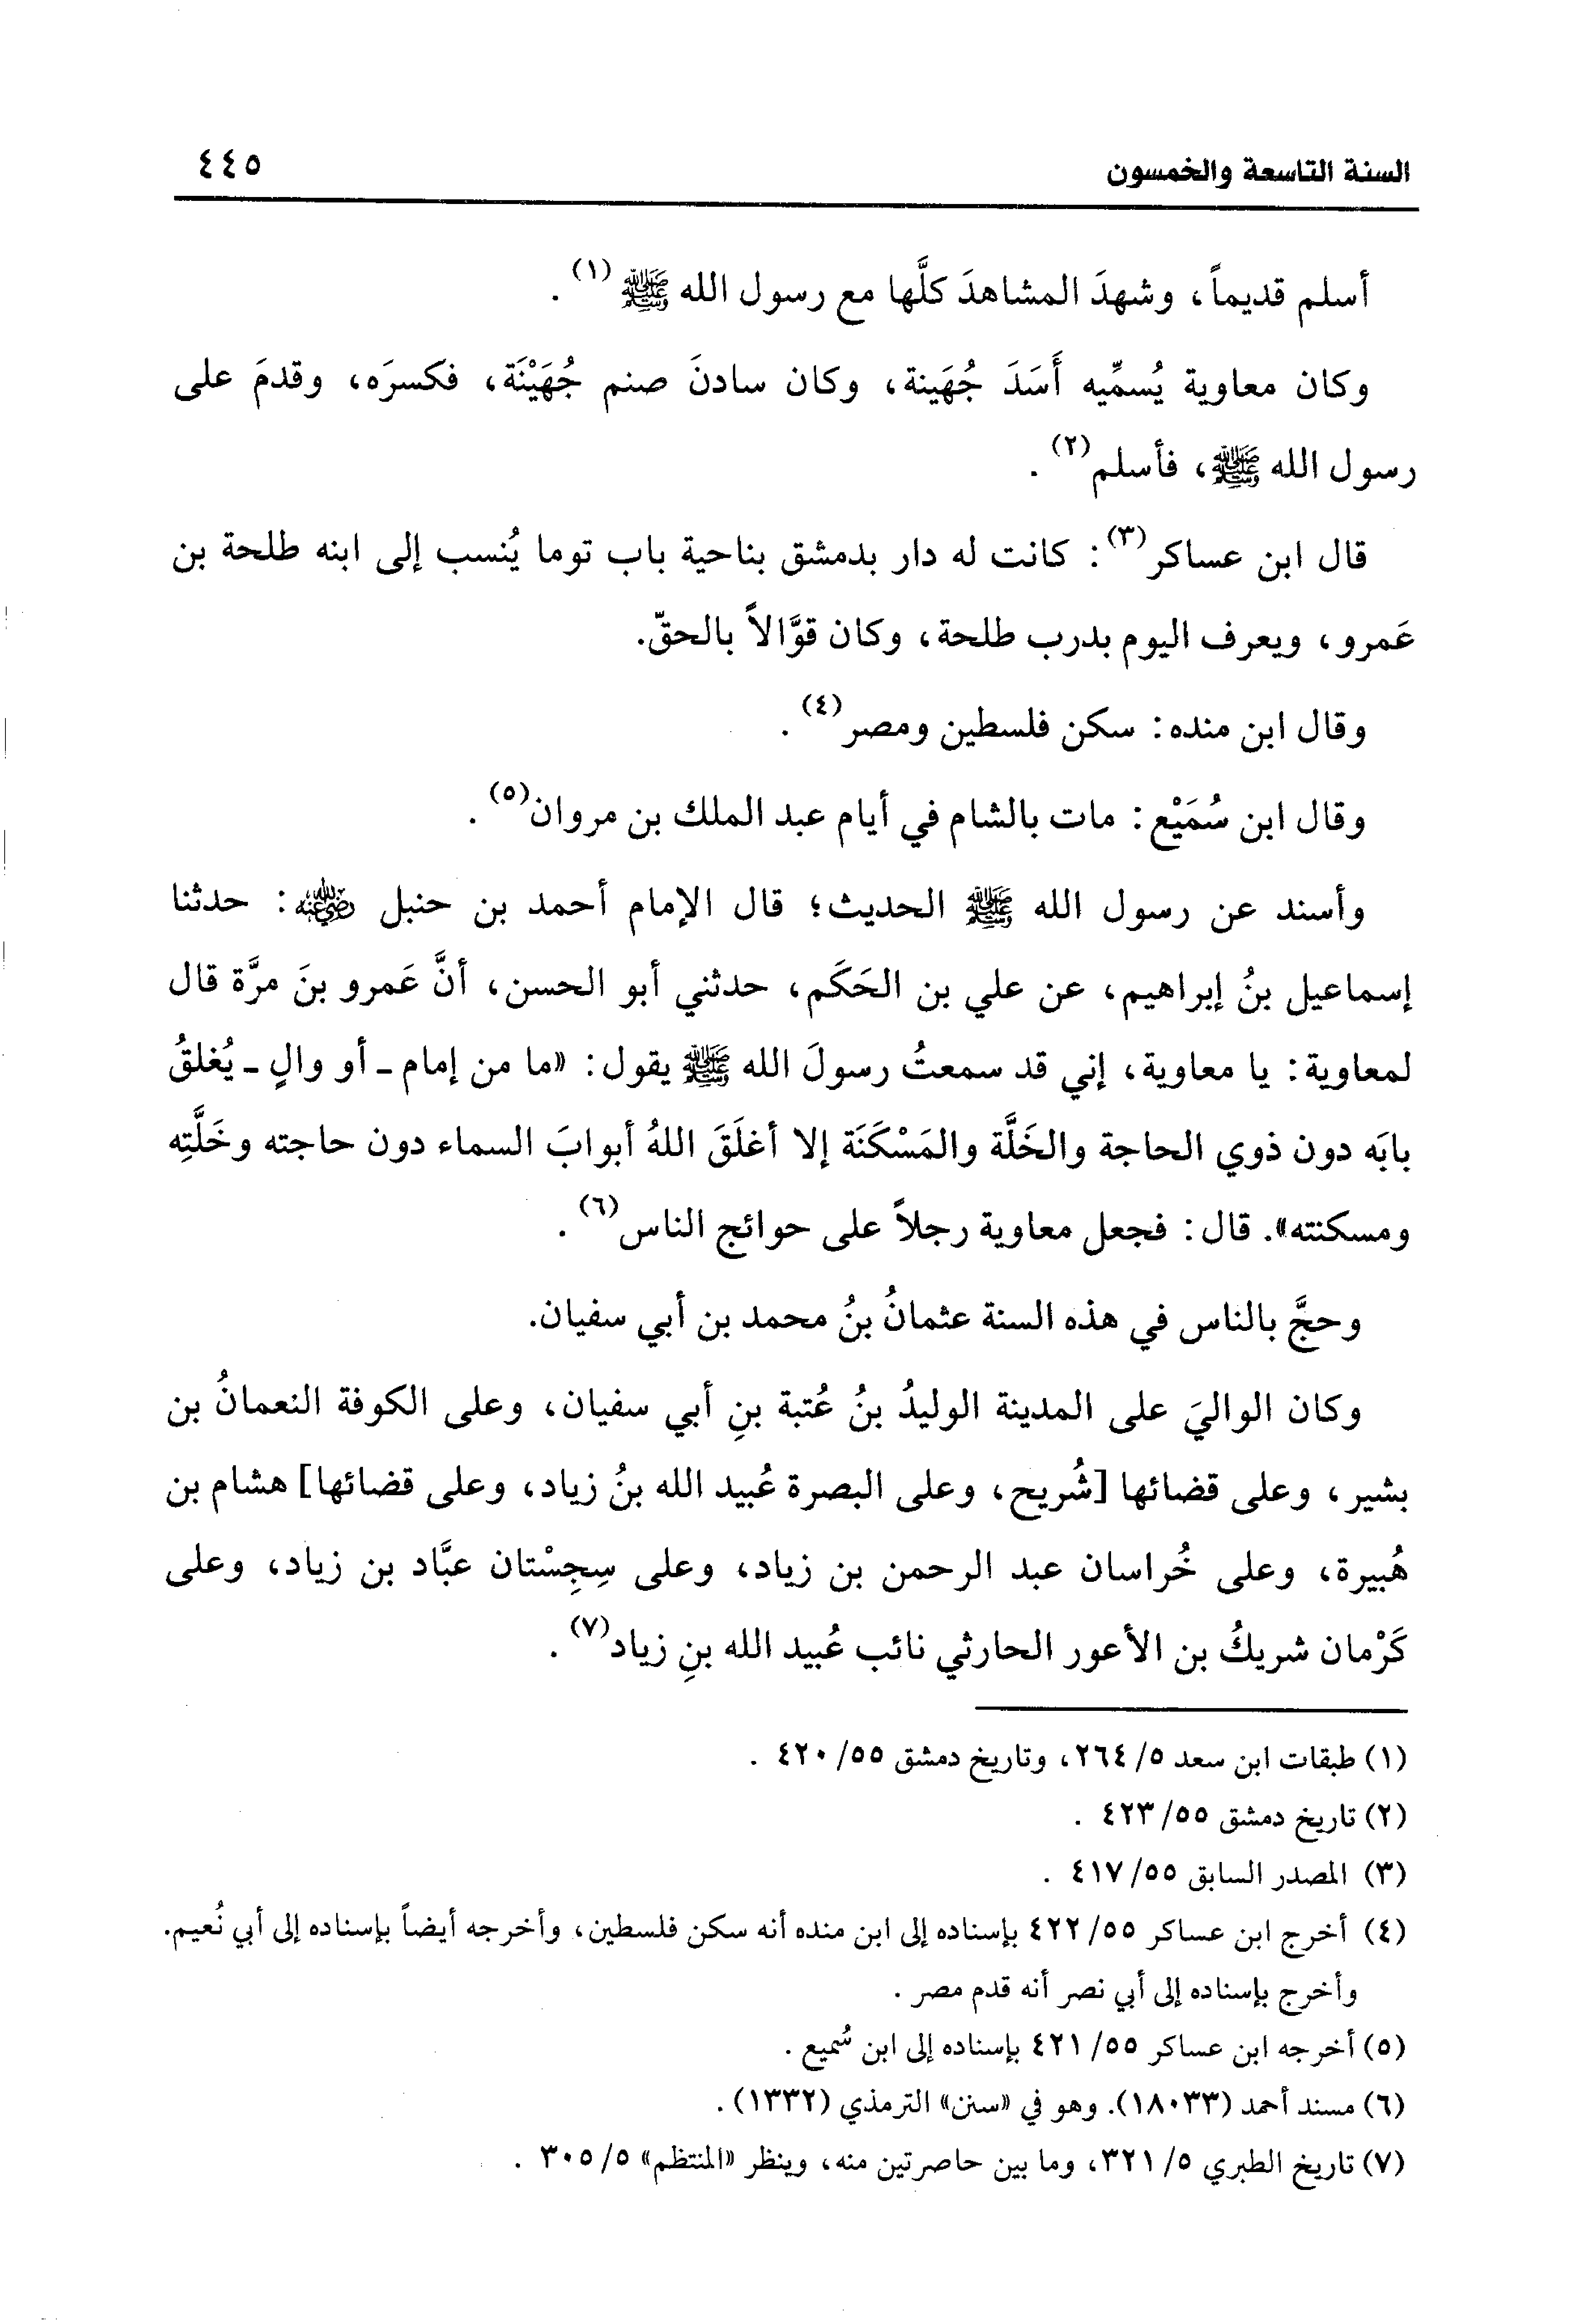 السنة التاسعة والخمسون ٤٤٥
أسلم قديماً، وشهدَ المشاهدَ كلَّها مع رسول الله ﷺ(١).
وكان معاوية يُسمِّيه أَسَدَ جُهَينة، وكان سادنَ صنم جُهَيْنَة، فكسرَه، وقدمَ على
رسول الله ﷺ، فأسلم(٢).
قال ابن عساكر(٣): كانت له دار بدمشق بناحية باب توما يُنسب إلى ابنه طلحة بن
عَمرو، ويعرف اليوم بدرب طلحة، وكان قوَّالاً بالحقّ.
وقال ابن منده: سكن فلسطين ومصر(٤).
وقال ابن سُمَيْع: مات بالشام في أيام عبد الملك بن مروان(٥).
وأسند عن رسول الله ﷺ الحديث؛ قال الإمام أحمد بن حنبل رضي الله عنه: حدثنا
إسماعيل بنُ إبراهيم، عن علي بن الحَكَم، حدثني أبو الحسن، أنَّ عَمرو بنَ مرَّة قال
لمعاوية: يا معاوية، إني قد سمعتُ رسولَ الله ﷺ يقول: «ما من إمام ـ أو والٍ ـ يُغلقُ
بابَه دون ذوي الحاجة والخَلَّة والمَسْكَنَة إلا أغلَقَ اللهُ أبوابَ السماء دون حاجته وخَلَّتِه
ومسكنته». قال: فجعل معاوية رجلاً على حوائج الناس(٦).
وحجَّ بالناس في هذه السنة عثمانُ بنُ محمد بن أبي سفيان.
وكان الواليَ على المدينة الوليدُ بنُ عُتبة بنِ أبي سفيان، وعلى الكوفة النعمانُ بن
بشير، وعلى قضائها [شُريح، وعلى البصرة عُبيد الله بنُ زياد، وعلى قضائها] هشام بن
هُبيرة، وعلى خُراسان عبد الرحمن بن زياد، وعلى سِجِسْتان عبَّاد بن زياد، وعلى
كَرْمان شريكُ بن الأعور الحارثي نائب عُبيد الله بنِ زياد(٧).
(١) طبقات ابن سعد ٥/ ٢٦٤، وتاريخ دمشق ٥٥/ ٤٢٠ .
(٢) تاريخ دمشق ٥٥/ ٤٢٣ .
(٣) المصدر السابق ٥٥/ ٤١٧ .
(٤) أخرج ابن عساكر ٥٥/ ٤٢٢ بإسناده إلى ابن منده أنه سكن فلسطين، وأخرجه أيضاً بإسناده إلى أبي نُعيم.
وأخرج بإسناده إلى أبي نصر أنه قدم مصر .
(٥) أخرجه ابن عساكر ٥٥/ ٤٢١ بإسناده إلى ابن سُميع .
(٦) مسند أحمد (١٨٠٣٣). وهو في «سنن» الترمذي (١٣٣٢) .
(٧) تاريخ الطبري ٥/ ٣٢١، وما بين حاصرتين منه، وينظر «المنتظم» ٥/ ٣٠٥ .